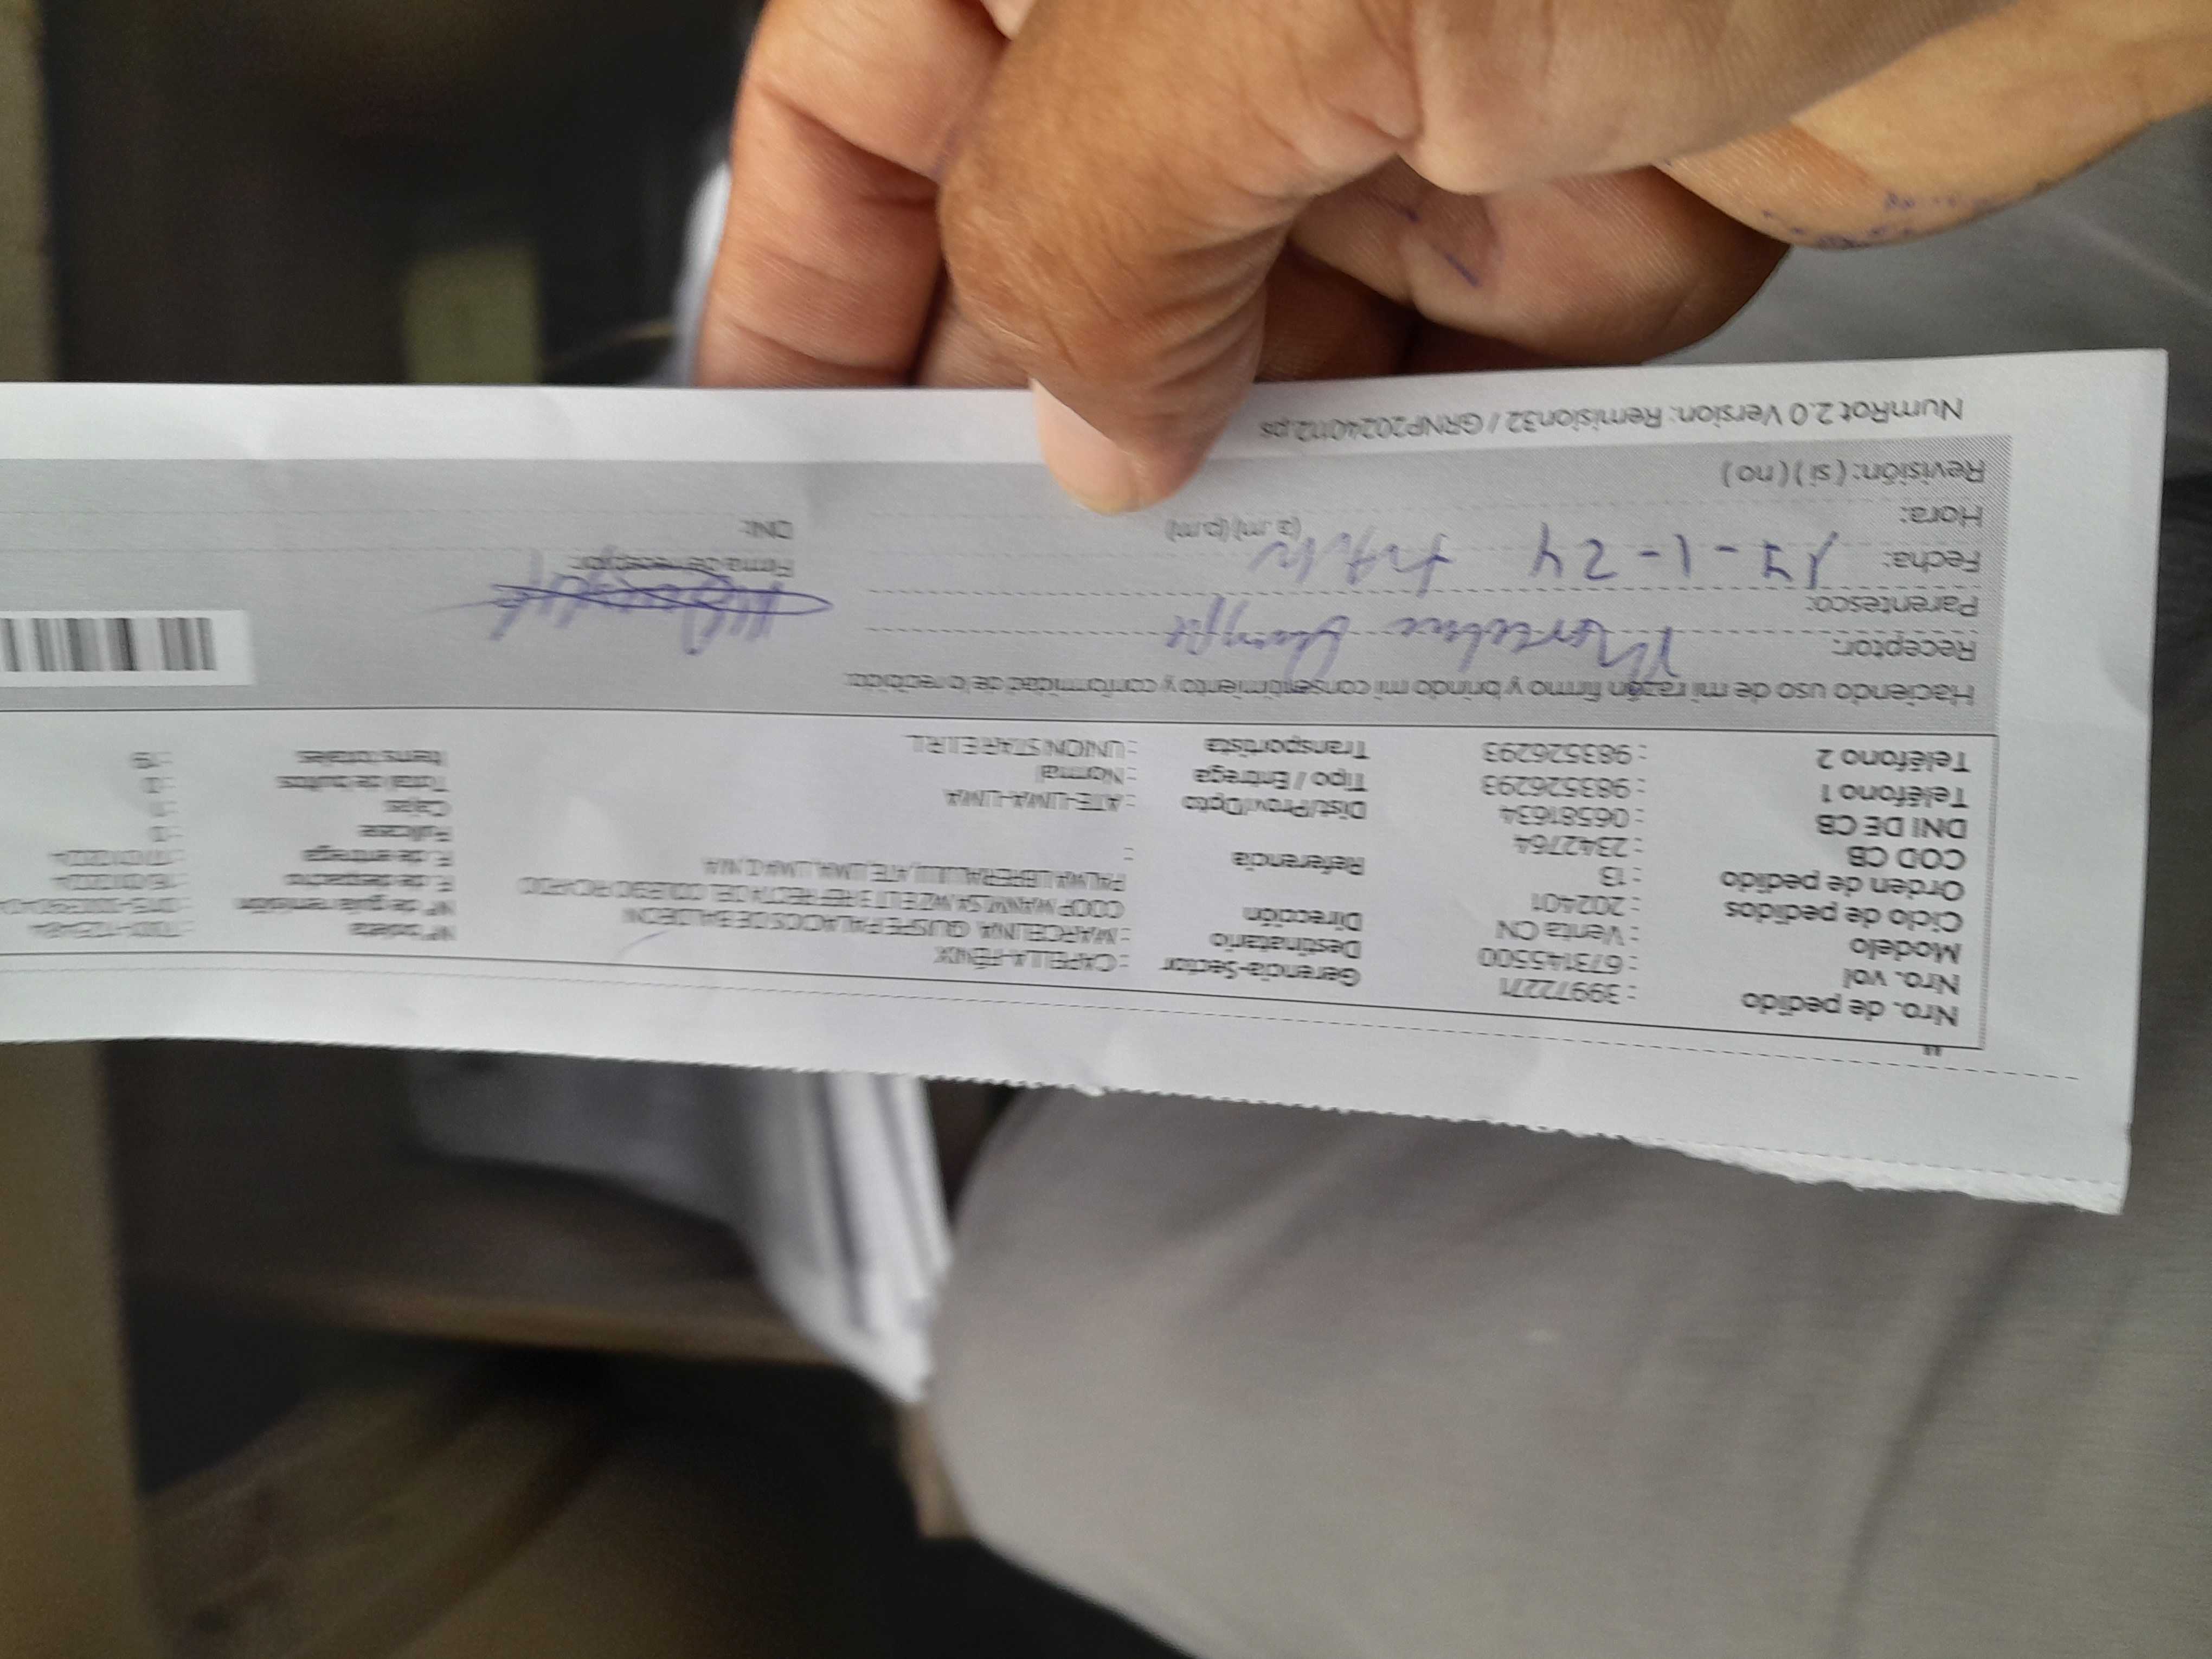 Nro. de pedido : 39972271 Gerencia-Sector : CAPELLA-FÉNIX Nº boleta
Nro. vol : 673145500 Destinatario : MARCELINA QUISPE PALACIOS DE BALDEON Nº de guía remisión
Modelo : Venta CN Dirección COOP. MANYLSA MZ E LT 3 REF RECTA DEL COLEGIO RICARDO F. de despacho : 16/01/2024
Ciclo de pedidos : 202401 PALMA LIBRERIA LULU, ATE, LIMA, LIMA F. de entrega : 17/01/2024
Orden de pedido : 13 Referencia : Fullcase
COD CB : 2342764 Cajas : 1
DNI DE CB : 06581634 Dist/Prov/Dpto : ATE-LIMA-LIMA Total de bultos
Teléfono 1 : 983526293 Tipo / Entrega : Normal Items totales : 19
Teléfono 2 : 983526293 Transportista : UNION STAR E.I.R.L
Haciendo uso de mi razón firmo y brindo mi consentimiento y conformidad de lo recibido:
Receptor: Marcelina Quispe
Parentesco:
Fecha: 17-1-24 Firma de receptor:
Hora: (a.m) (p.m) DNI:
Revisión: ( si ) ( no )
NumRot 2.0 Version: Remision32 / GRNP20240112.ps